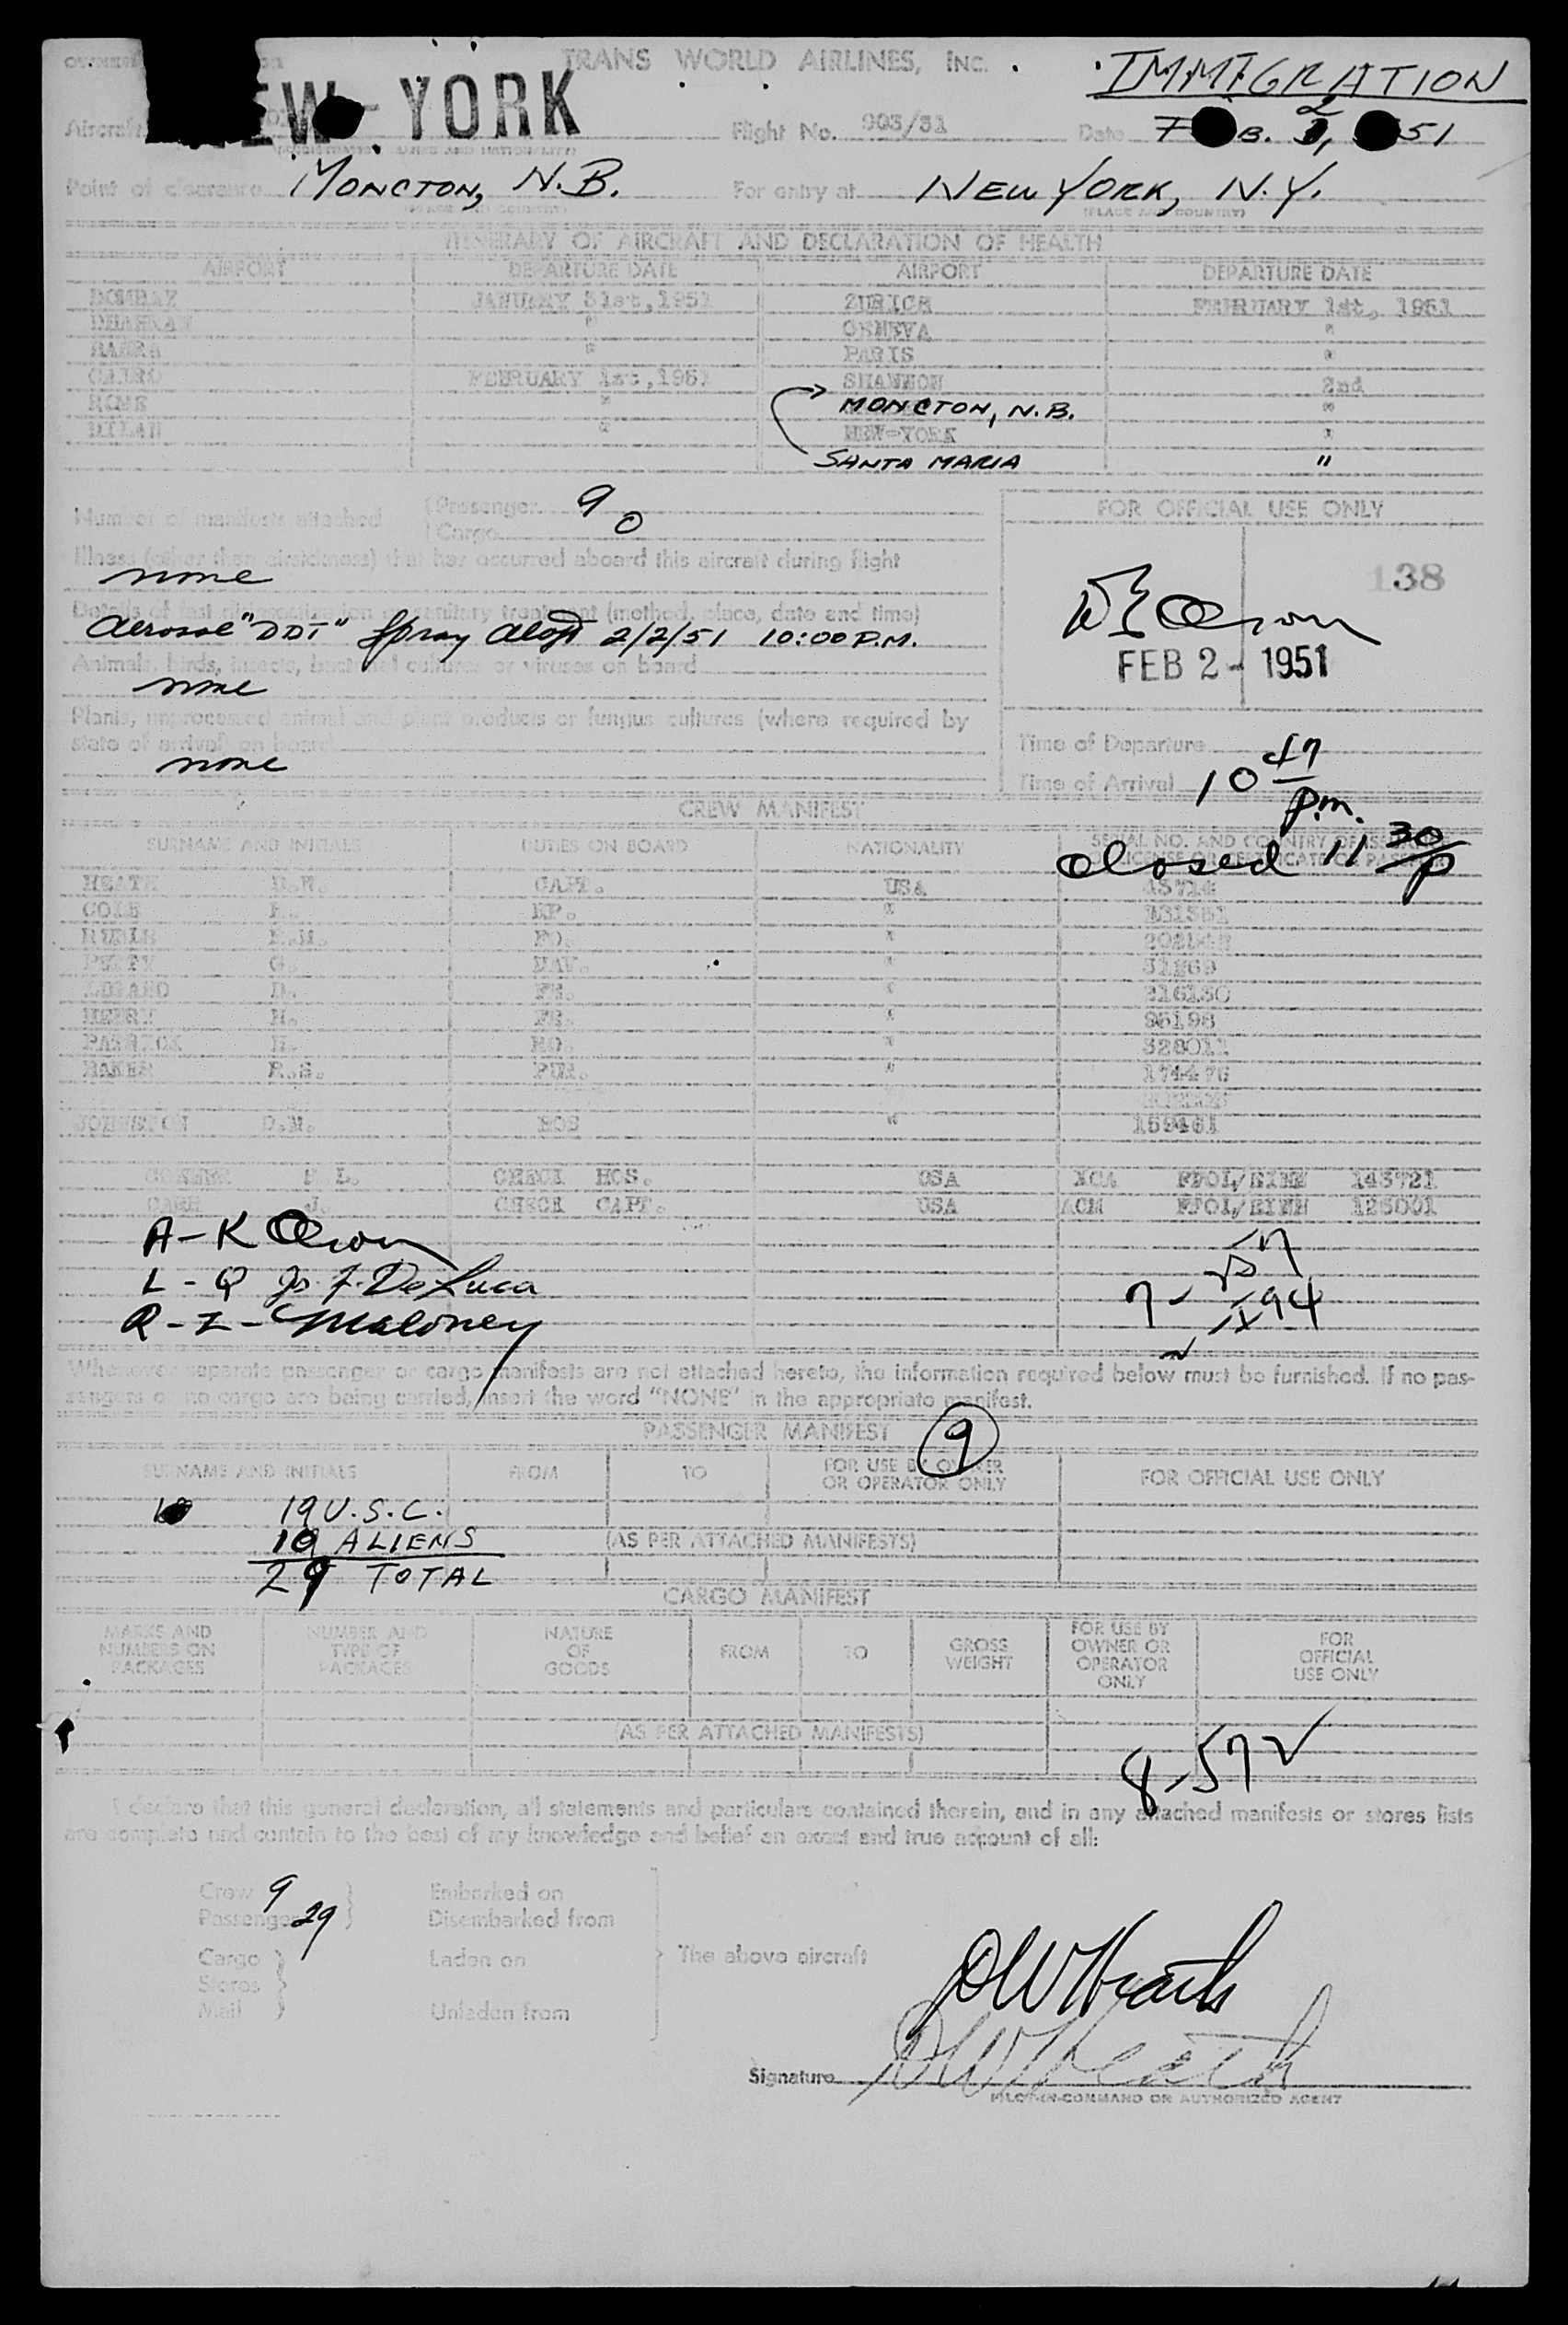 TRANS WORLD AIRLINES, INC.
IMMIGRATION
YORK
Aircraft
Flight No. 903/31
Date 51
Point of clearance MONCTON, N.B. For entry at NEW YORK, N.Y.
(PLACE AND COUNTRY) (PLACE AND COUNTRY)
ITINERARY OF AIRCRAFT AND DECLARATION OF HEALTH
AIRPORT DEPARTURE DATE AIRPORT DEPARTURE DATE
BOMBAY JANUARY 31st, 1951 ZURICH FEBRUARY 1st, 1951
DHAHRAN " GENEVA "
BASRA " PARIS "
CAIRO FEBRUARY 1st, 1951 SHANNON 2nd
ROME " MONCTON, N.B. "
MILAN " NEW-YORK "
SANTA MARIA "
Number of manifests attached Passenger 9
Cargo 0
FOR OFFICIAL USE ONLY
Illness (other than airsickness) that has occurred aboard this aircraft during flight
none
138
Details of last disinsectization or sanitary treatment (method, place, date and time)
Aerosol "DDT" Spray Aloft 2/2/51 10:00 P.M.
Animals, birds, insects, bacterial cultures or viruses on board
none
FEB 2 - 1951
Plants, unprocessed animal and plant products or fungus cultures (where required by
state of arrival) on board
none
Time of Departure
Time of Arrival 10 47 p.m.
CREW MANIFEST
closed 11 30/p
SURNAME AND INITIALS DUTIES ON BOARD NATIONALITY SERIAL NO. AND COUNTRY OF ISSUE OF LICENSE OR CERTIFICATE OR PASSPORT
HEATH D.W. CAPT. USA
COLE F. "
FO. "
PETTY G. NAV. "
D. FE. " 216130
HENRY H. FE. " 86198
PATRICK H. RO. "
BAKER R.S. PUR. " 174476
JOHNSTON D.M. HOS " 159461
L. CHECK HOS. USA 143721
J. CHECK CAPT. USA 125001
A - K Olson
L - Q Js. F. DeLuca
R - Z - Maloney
Whenever separate passenger or cargo manifests are not attached hereto, the information required below must be furnished. If no pas-
sengers or no cargo are being carried, insert the word "NONE" in the appropriate manifest.
PASSENGER MANIFEST
9
SURNAME AND INITIALS FROM TO FOR USE BY OWNER OR OPERATOR ONLY FOR OFFICIAL USE ONLY
19 U.S.C.
10 ALIENS
(AS PER ATTACHED MANIFESTS)
29 TOTAL
CARGO MANIFEST
MARKS AND NUMBERS ON PACKAGES NUMBER AND TYPE OF PACKAGES NATURE OF GOODS FROM TO GROSS WEIGHT FOR USE BY OWNER OR OPERATOR ONLY FOR OFFICIAL USE ONLY
(AS PER ATTACHED MANIFESTS)
8-57
I declare that this general declaration, all statements and particulars contained therein, and in any attached manifests or stores lists
are complete and contain to the best of my knowledge and belief an exact and true account of all:
Crew 9 Embarked on
Passengers 29 Disembarked from
Cargo Laden on The above aircraft
Stores
Mail Unladen from
DW Heath
Signature DW Heath
PILOT-IN-COMMAND OR AUTHORIZED AGENT